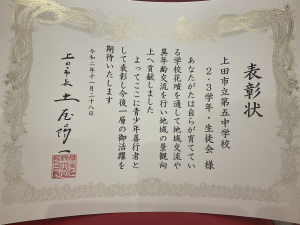 表彰状
上田市立第五中学校
2・3学年・生徒会 様
あなたがたは自らが育ててい
る学校花壇を通して地域交流や
異年齢交流を行い地域の景観向
上へ貢献しました
よってここに青少年善行者と
して表彰し今後一層の御活躍を
期待いたします
令和二年十一月二十八日
上田市長 土屋陽一